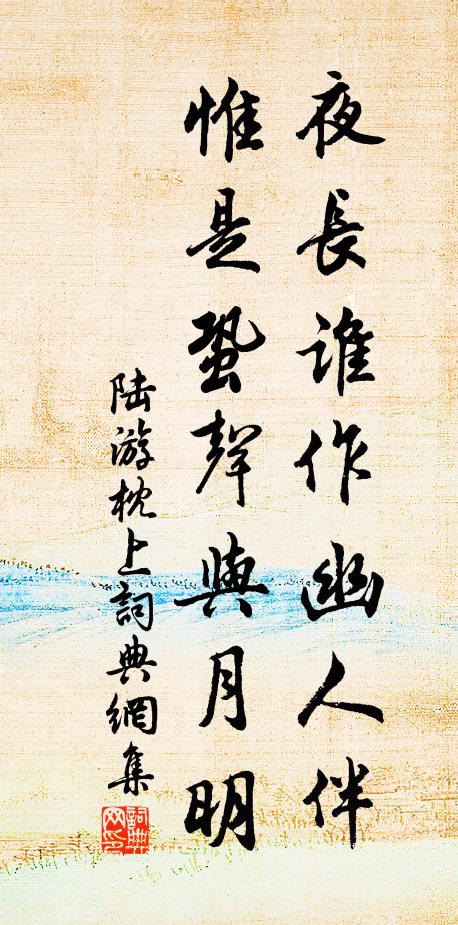 夜長誰作幽人伴
惟是蛩聲與月明
陸游枕上詞典網集
詞典网印